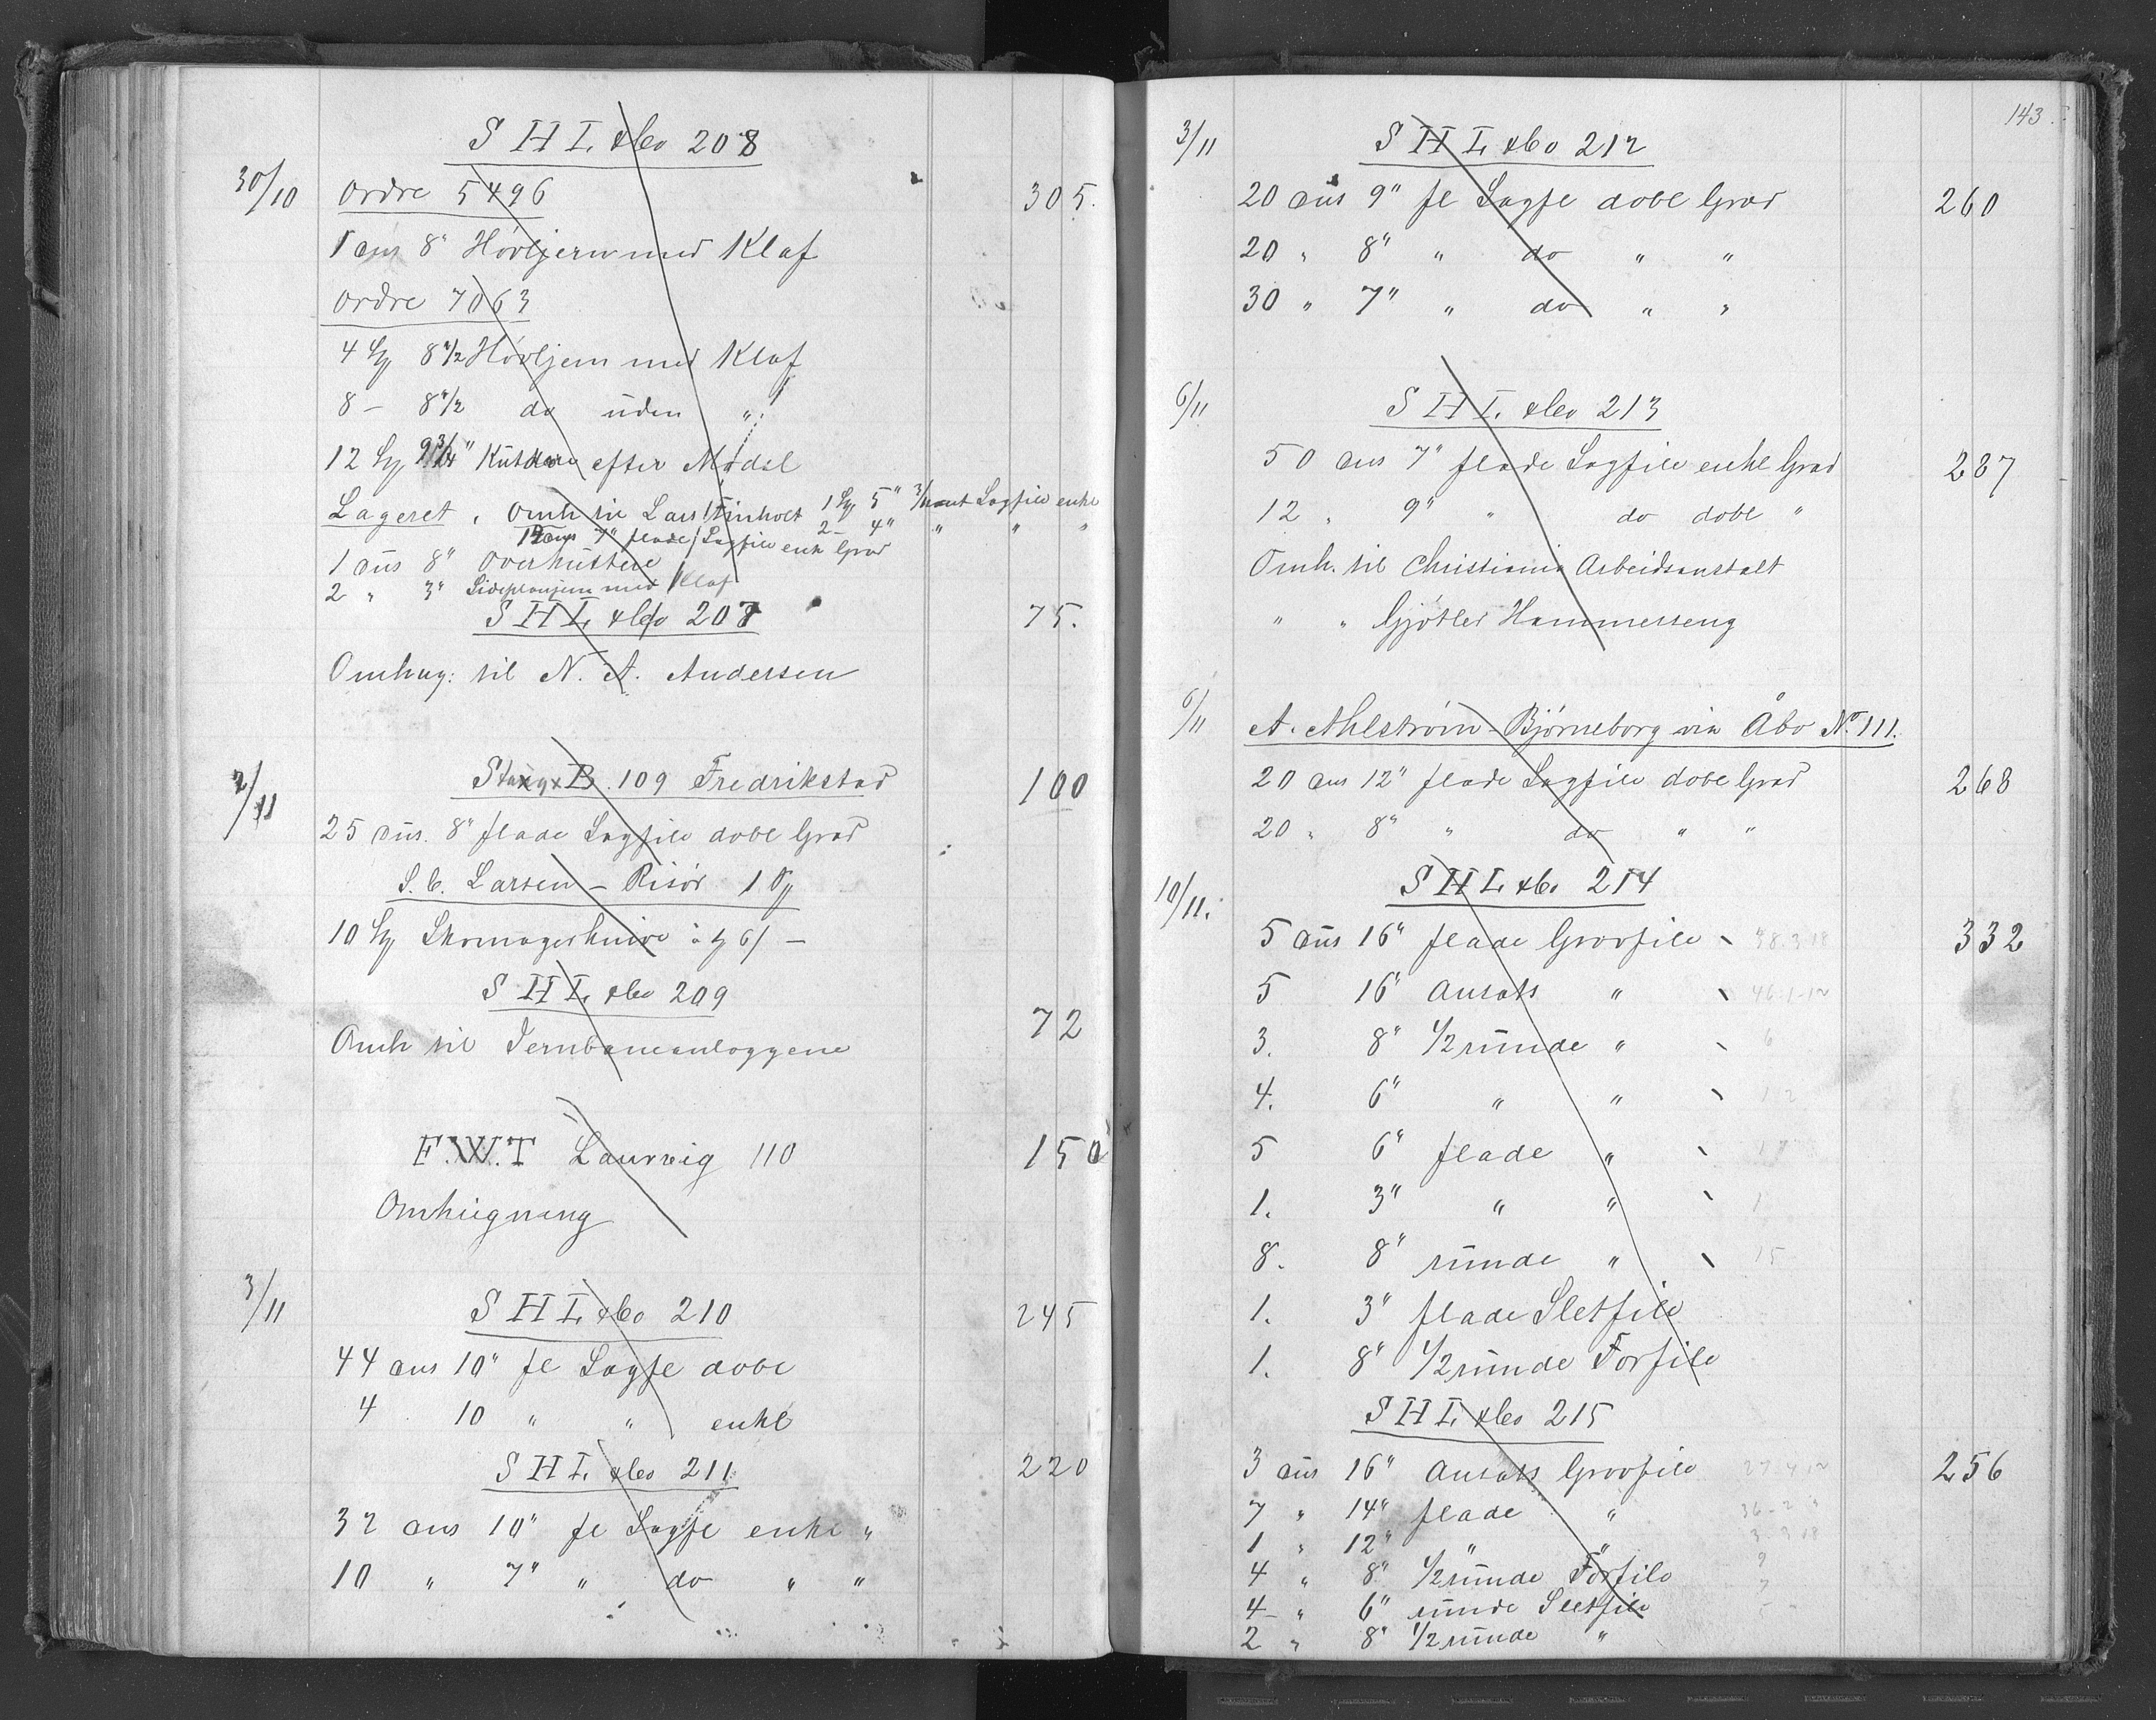 S H L & Co 208
30/10 Ordre 5496 305.
1 dus 8" Høvljern med Klaf
Ordre 7063
4 8 1/2 Høvljern med Klaf
8 – 8 1/2 do uden "
12 9 3/4" efter Model
Lageret, Omh til Lars 1 5" 3/kant Sagfile enkl
12 dus 7" flade Sagfile enk Grad 2 – 4" " " "
1 dus 8" Overhuttere
2 " 3" med Klaf
S H L & Co 207 75.
Omhug: til N. A. Andersen
2/11 B. 109 Fredrikstad 100
25 dus. 8" flade Sagfile dobl Grad
S. C. Larsen – Risør 10
10 Skomagerknive à 6/–
S H L & Co 209
Omh til Jernbaneanlæggene 72
F.W.T Laurvig 110 150
Omhugning
3/11 S H L & Co 210 245
44 dus 10" fl Sagfl dobl
4 10 " " enkl
S H L & Co 211 220
32 dus 10" fl Sagfl enkl "
10 " 7" " do " "
143
3/11 S H L & Co 212
20 dus 9" fl Sagfl dobl Grad 260
20 " 8" " do " "
30 " 7" " do " "
6/11 S H L & Co 213
50 dus 7" flade Sagfile enkl Grad 287
12 " 9" " do dobl "
Omh. til Christiania Arbeidsanstalt
" " Gjøtler Hammerseng
6/11 A. Ahlström – Bjørneborg via Åbo No. 111.
20 dus 12" flade Sagfile dobl Grad 268
20 " 8" " do " "
10/11. S H L & Co 214
5 dus 16" flade Grovfile 332
5 16" Ansats "
3. 8" 1/2 runde " 6
4. 6" " " 12
5 6" flade "
1. 3" " " 1
8. 8" runde " 15
1. 3" flade Sletfile
1. 8" 1/2 runde Forfile
S H L & Co 215
3 dus 16" Ansats Grovfile 256
7 " 14" flade "
1 " 12" " "
4 " 8" 1/2 runde Forfile
4 – " 6" runde Sletfile
2 " 8" 1/2 runde "